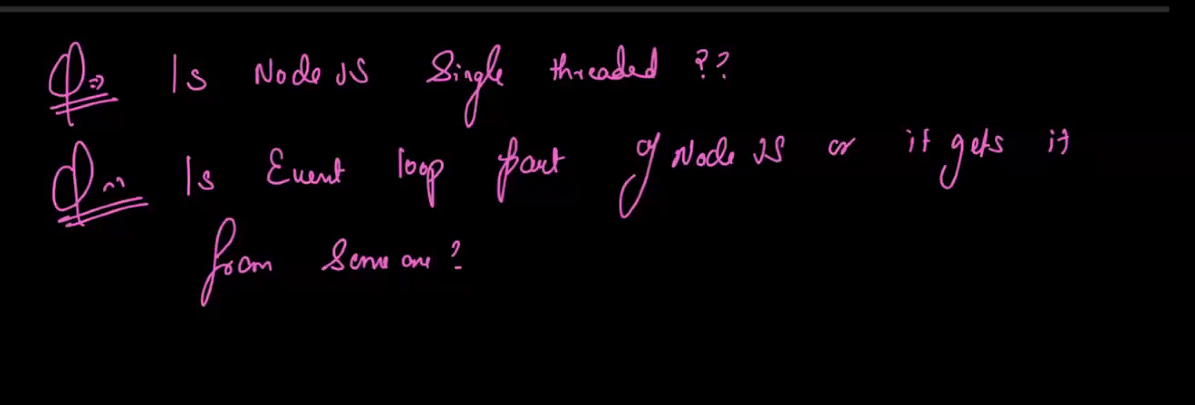 Q⇒ Is Node JS Single threaded ??
Q~ Is Event loop part of Node JS or it gets it
from Some one ?